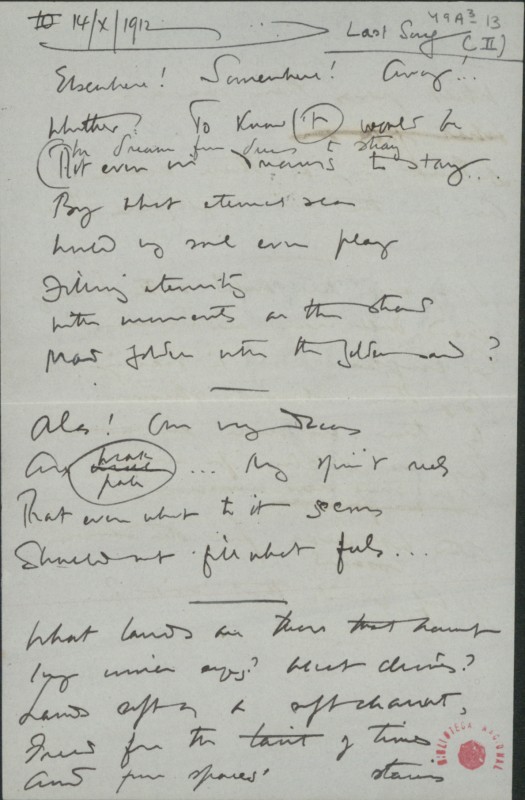 14/X/1912
49A³ 13
Last Song
(II)
Elsewhere! Somewhere! Away!...
Whither? To know it would be
the dream for dreams to stay
Not even in dreams to stay...
By that eternal sea
would my soul ever play
Filling eternity
with moments on the strand
Made golden with the golden sand?
Alas! Our very dreams
Are weak
pale ... My spirit reels
That even what to it seems
Should not fill what feels...
What lands are there that haunt
my inner eyes? What climes?
Lands soft as a soft chaunt,
Freed from the taint of times
And from spaces' stains
BIBLIOTECA NACIONAL